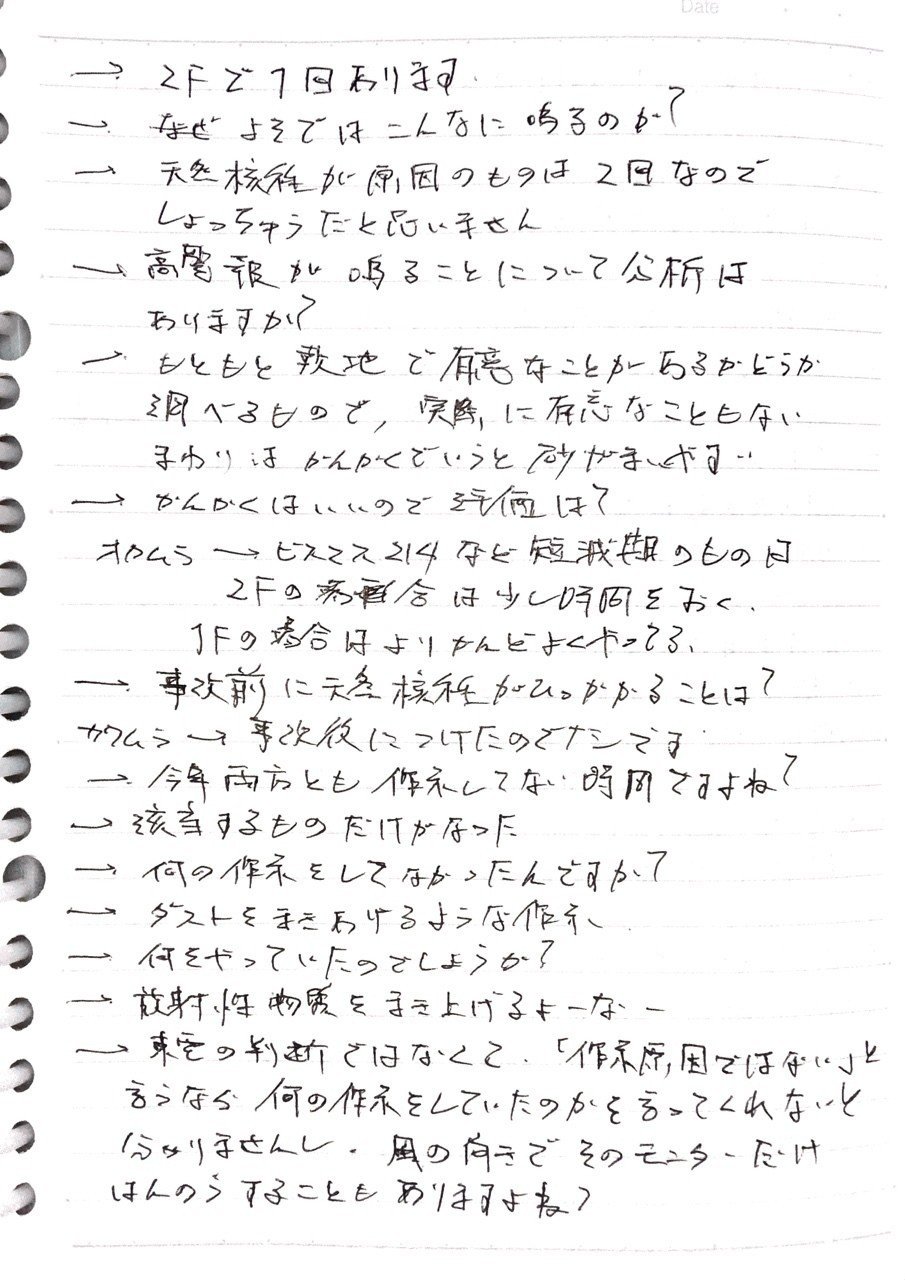 Date
→ 2Fで1回あります.
→ なぜ よそではこんなに鳴るのか?
→ 天然核種が原因のものは2回なので
しょっちゅうだと思いません
→ 高警報が鳴ることについて分析は
ありますか?
→ もともと敷地で有意なことがあるかどうか
調べるもので, 実際に有意なこともない
まわりはかんかくでいうと砂がまいやすい
→ かんかくはいいので評価は?
→ ビスマス214など短減期のものは
2Fの場合は少し時間をおく.
1Fの場合はよりかんどよくやってる、
→ 事故前に天然核種がひっかかることは?
カワムラ → 事故後につけたのでナシです
→ 今年両方とも作業してない時間ですよね?
→ 該当するものだけがなった
→ 何の作業をしてなかったんですか?
→ ダストをまきあげるような作業、
→ 何をやっていたのでしょうか?
→ 放射性物質をまき上げるよーなー
→ 東電の判断ではなくて.「作業原因ではない」と
言うなら 何の作業をしていたのかを言ってくれないと
分かりませんし. 風の向きでそのモニターだけ
はんのうすることもありますよね?